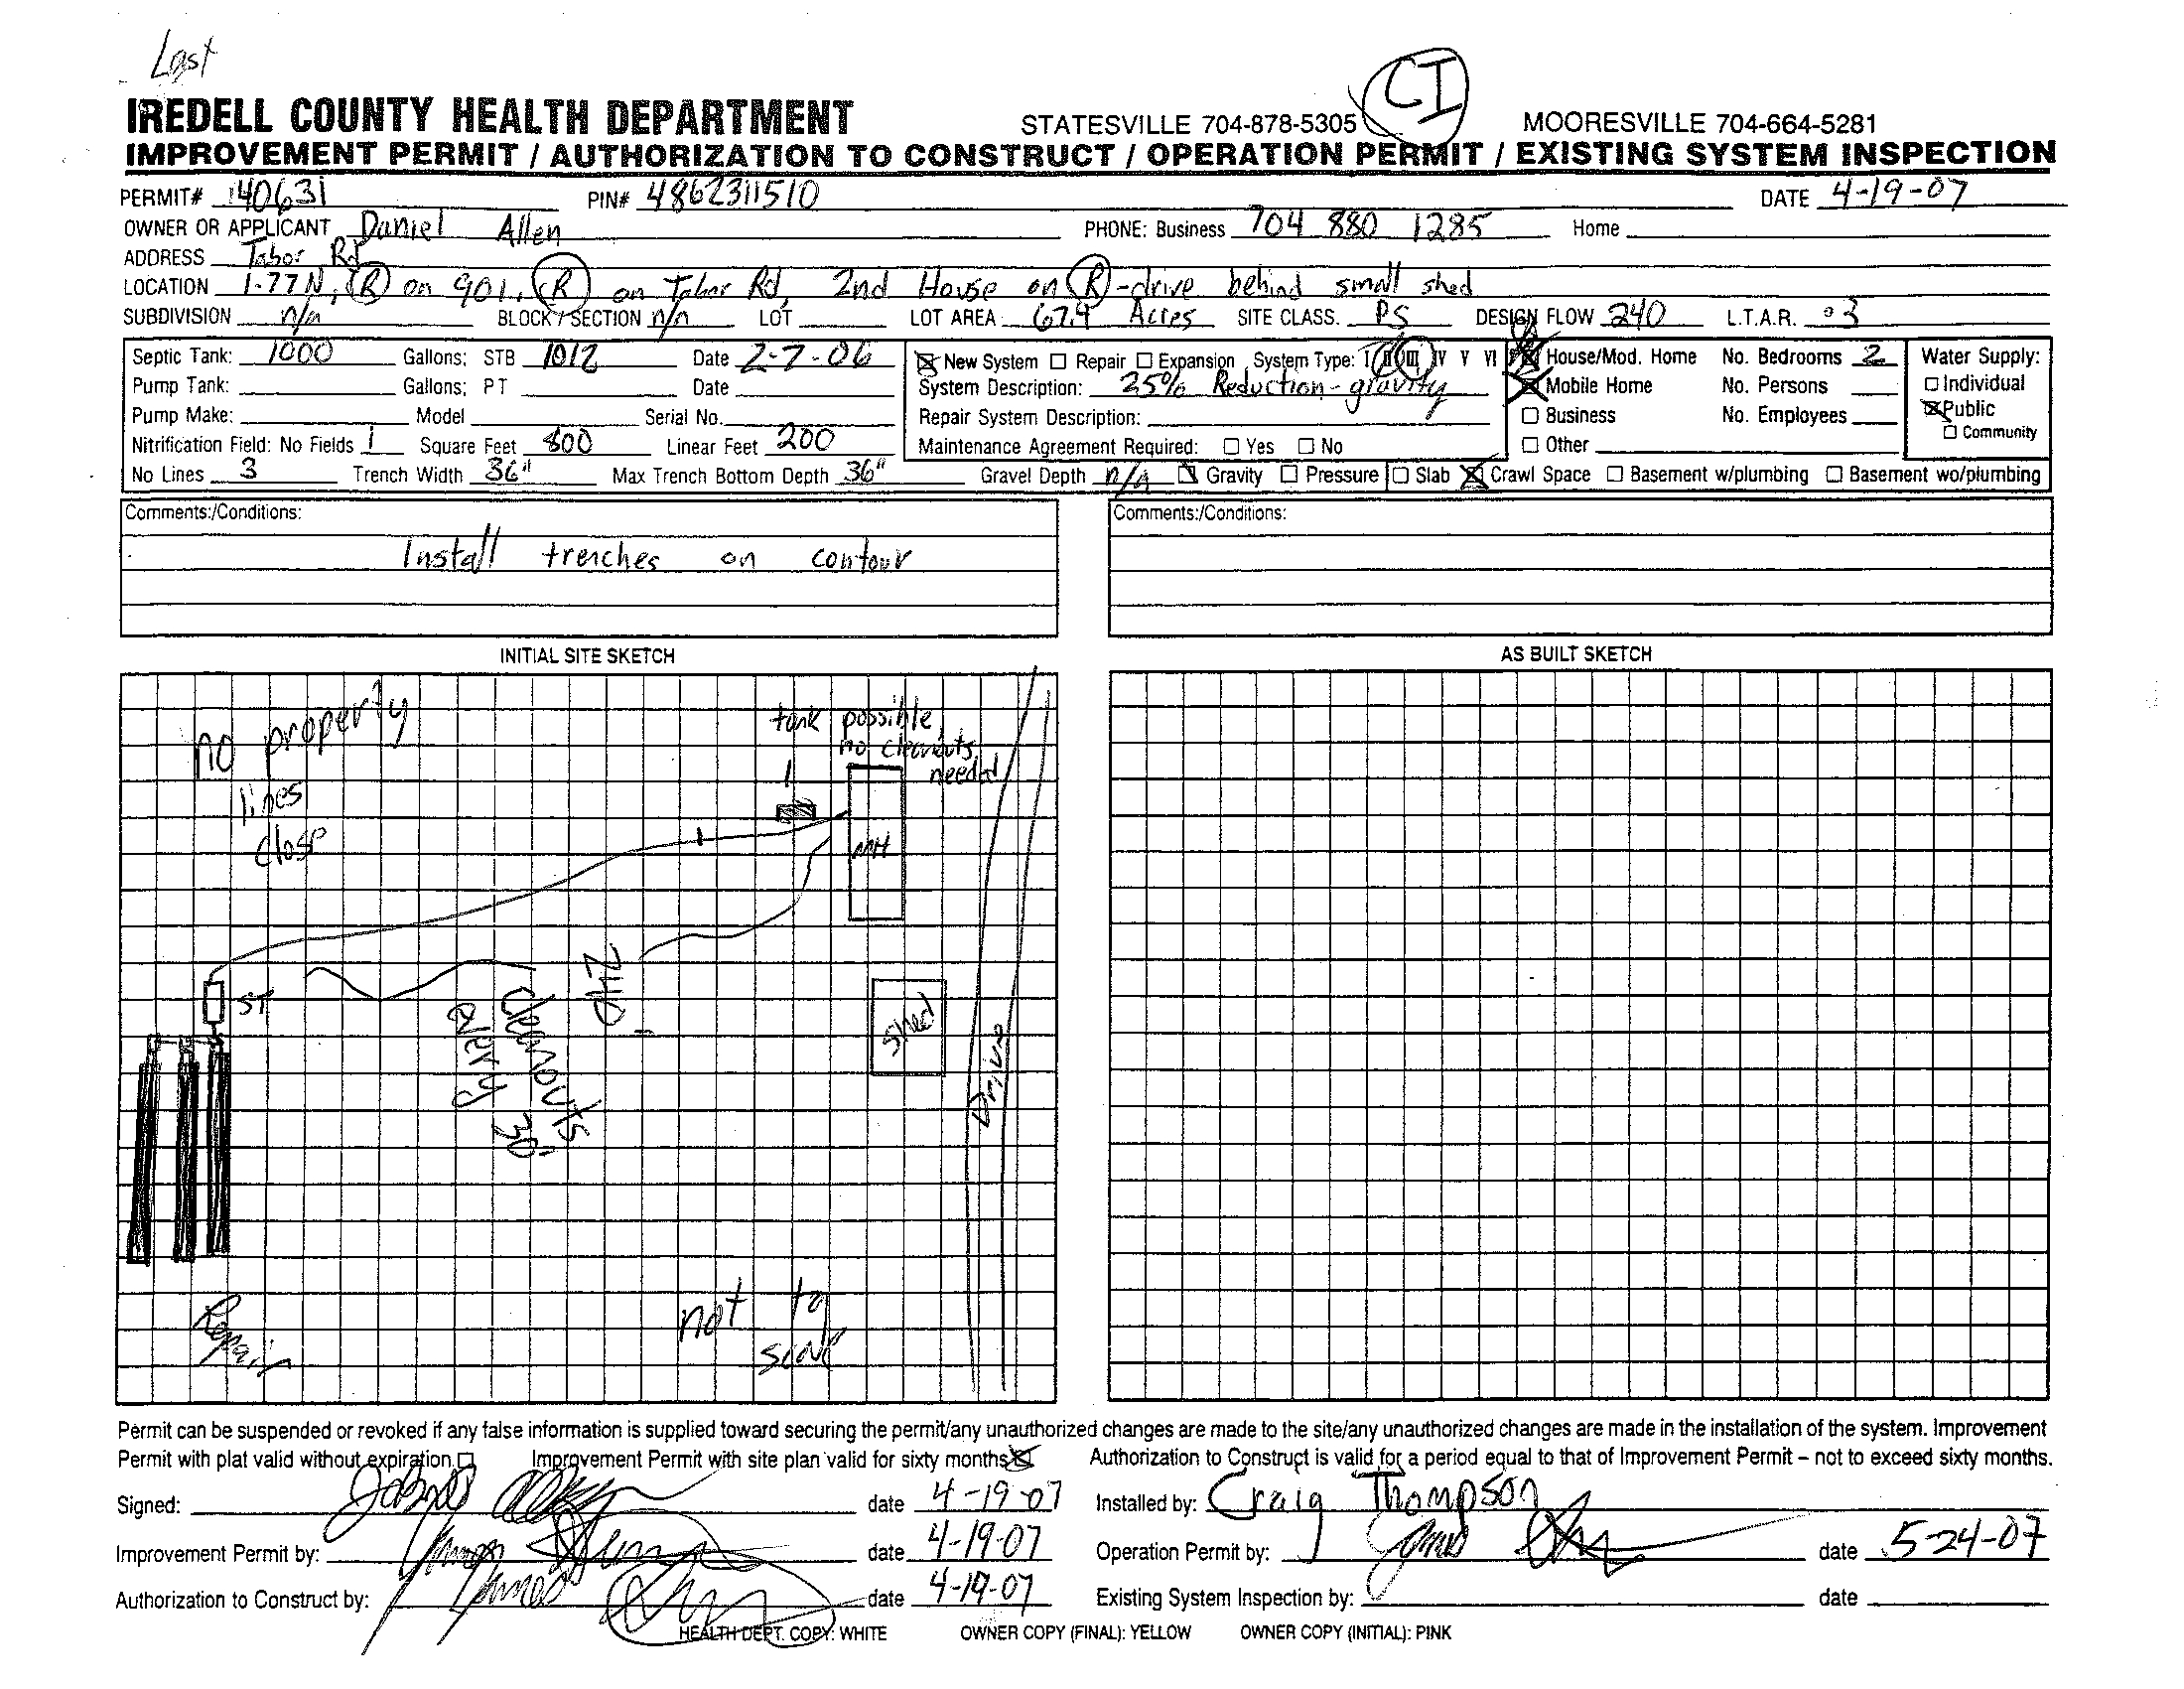 Last
CI
IREDELL COUNTY HEALTH DEPARTMENT STATESVILLE 704-878-5305 MOORESVILLE 704-664-5281
IMPROVEMENT PERMIT / AUTHORIZATION TO CONSTRUCT / OPERATION PERMIT / EXISTING SYSTEM INSPECTION
PERMIT# 140631 PIN# 4862311510 DATE 4-19-07
OWNER OR APPLICANT Daniel Allen PHONE: Business 704 880 1285 Home
ADDRESS Tabor Rd
LOCATION I-77N, R on 901, R on Tabor Rd, 2nd House on R-drive behind small shed
SUBDIVISION n/a BLOCK / SECTION n/a LOT LOT AREA 67.9 Acres SITE CLASS. PS DESIGN FLOW 240 L.T.A.R. .3
Septic Tank: 1000 Gallons; STB 1012 Date 2-7-06 New System Repair Expansion System Type: I II III IV V VI House/Mod. Home No. Bedrooms 2 Water Supply:
Pump Tank: Gallons; PT Date System Description: 25% Reduction - gravity Mobile Home No. Persons Individual
Pump Make: Model Serial No. Repair System Description: Business No. Employees Public
Nitrification Field: No Fields 1 Square Feet 800 Linear Feet 200 Maintenance Agreement Required: Yes No Other Community
No Lines 3 Trench Width 36" Max Trench Bottom Depth 36" Gravel Depth n/a Gravity Pressure Slab Crawl Space Basement w/plumbing Basement wo/plumbing
Comments:/Conditions: Comments:/Conditions:
Install trenches on contour
INITIAL SITE SKETCH AS BUILT SKETCH
no property
lines
close
tank possible
no cleanouts
needed
MH
ST
240'
cleanouts
every 30'
Shed
Drive
Repair
not to
scale
Permit can be suspended or revoked if any false information is supplied toward securing the permit/any unauthorized changes are made to the site/any unauthorized changes are made in the installation of the system. Improvement
Permit with plat valid without expiration. Improvement Permit with site plan valid for sixty months Authorization to Construct is valid for a period equal to that of Improvement Permit – not to exceed sixty months.
Signed: date 4-19-07 Installed by: Craig Thompson
Improvement Permit by: date 4-19-07 Operation Permit by: date 5-24-07
Authorization to Construct by: date 4-19-07 Existing System Inspection by: date
HEALTH DEPT. COPY: WHITE OWNER COPY (FINAL): YELLOW OWNER COPY (INITIAL): PINK